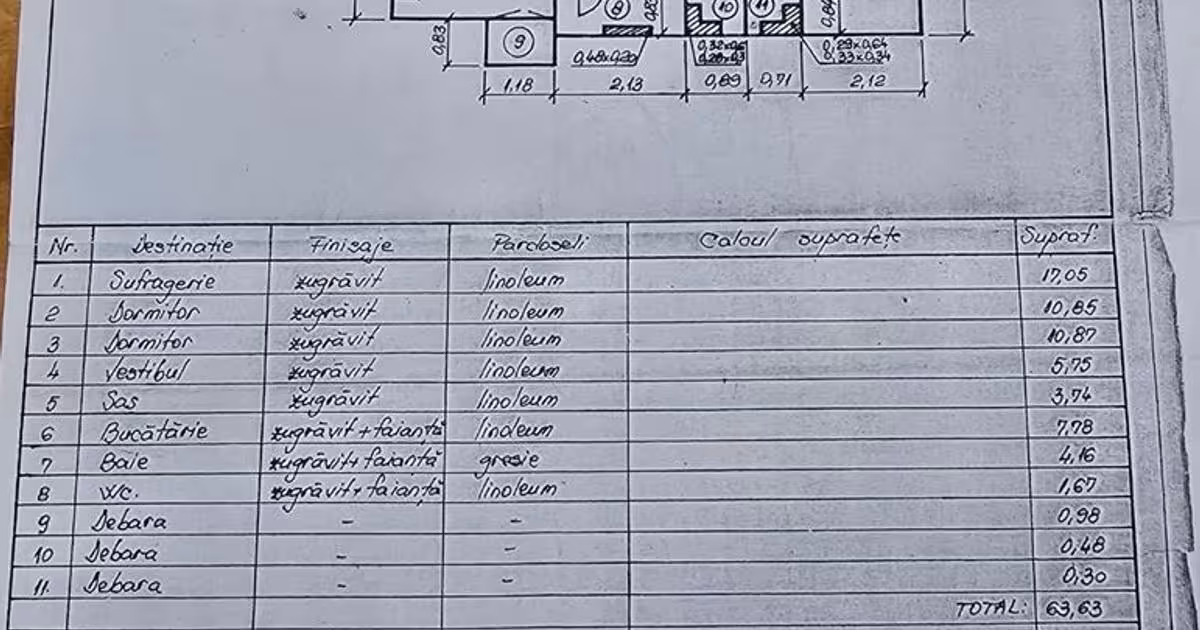 8
10
11
0,83
9
0,48x0,20
0,29x0,64
0,33x0,34
1,18
2,13
0,89
0,71
2,12
Nr. Destinație Finisaje Pardoseli Calcul suprafețe Supraf.
1. Sufragerie zugrăvit linoleum 17,05
2 Dormitor zugrăvit linoleum 10,85
3 Dormitor zugrăvit linoleum 10,87
4 Vestibul zugrăvit linoleum 5,75
5 Sas zugrăvit linoleum 3,74
6 Bucătărie zugrăvit + faianță linoleum 7,78
7 Baie zugrăvit + faianță gresie 4,16
8 Wc. zugrăvit + faianță linoleum 1,67
9 Debara – – 0,98
10 Debara – – 0,48
11. Debara – – 0,30
TOTAL: 63,63